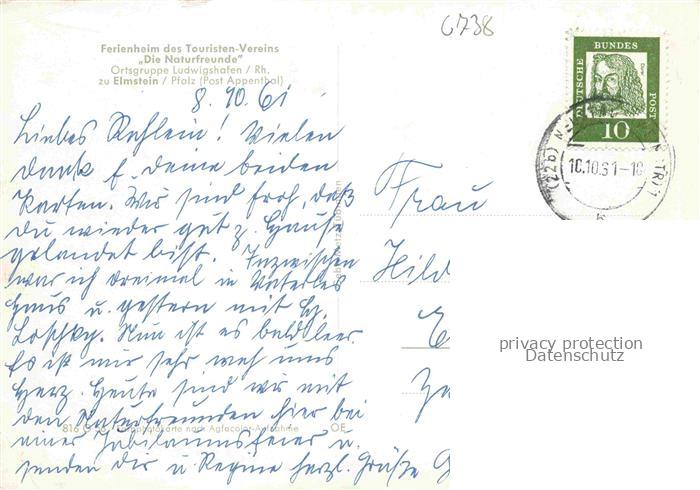 6738
Ferienheim des Touristen-Vereins
„Die Naturfreunde"
Ortsgruppe Ludwigshafen / Rh.
zu Elmstein / Pfalz (Post Appenthal)
8.10.61
Liebes Rehlein! Vielen
Dank f. deine beiden
Karten. Wir sind froh, daß
Du wieder gut z. Hause
gelandet bist. Inzwischen
war ich dreimal in Vaterles
Haus u. gestern mit
Loschky. Nun ist es bald leer.
Es ist mir sehr weh ums
Herz. Heute sind wir mit
den Naturfreunden hier bei
einer Jubiläumsfeier u.
senden dir u. Regine herzl. Grüße
816 nach Agfacolor-Aufnahme OE
DEUTSCHE BUNDES POST
10
(22b) 10.10.61-18
Frau
Hild
privacy protection
Datenschutz